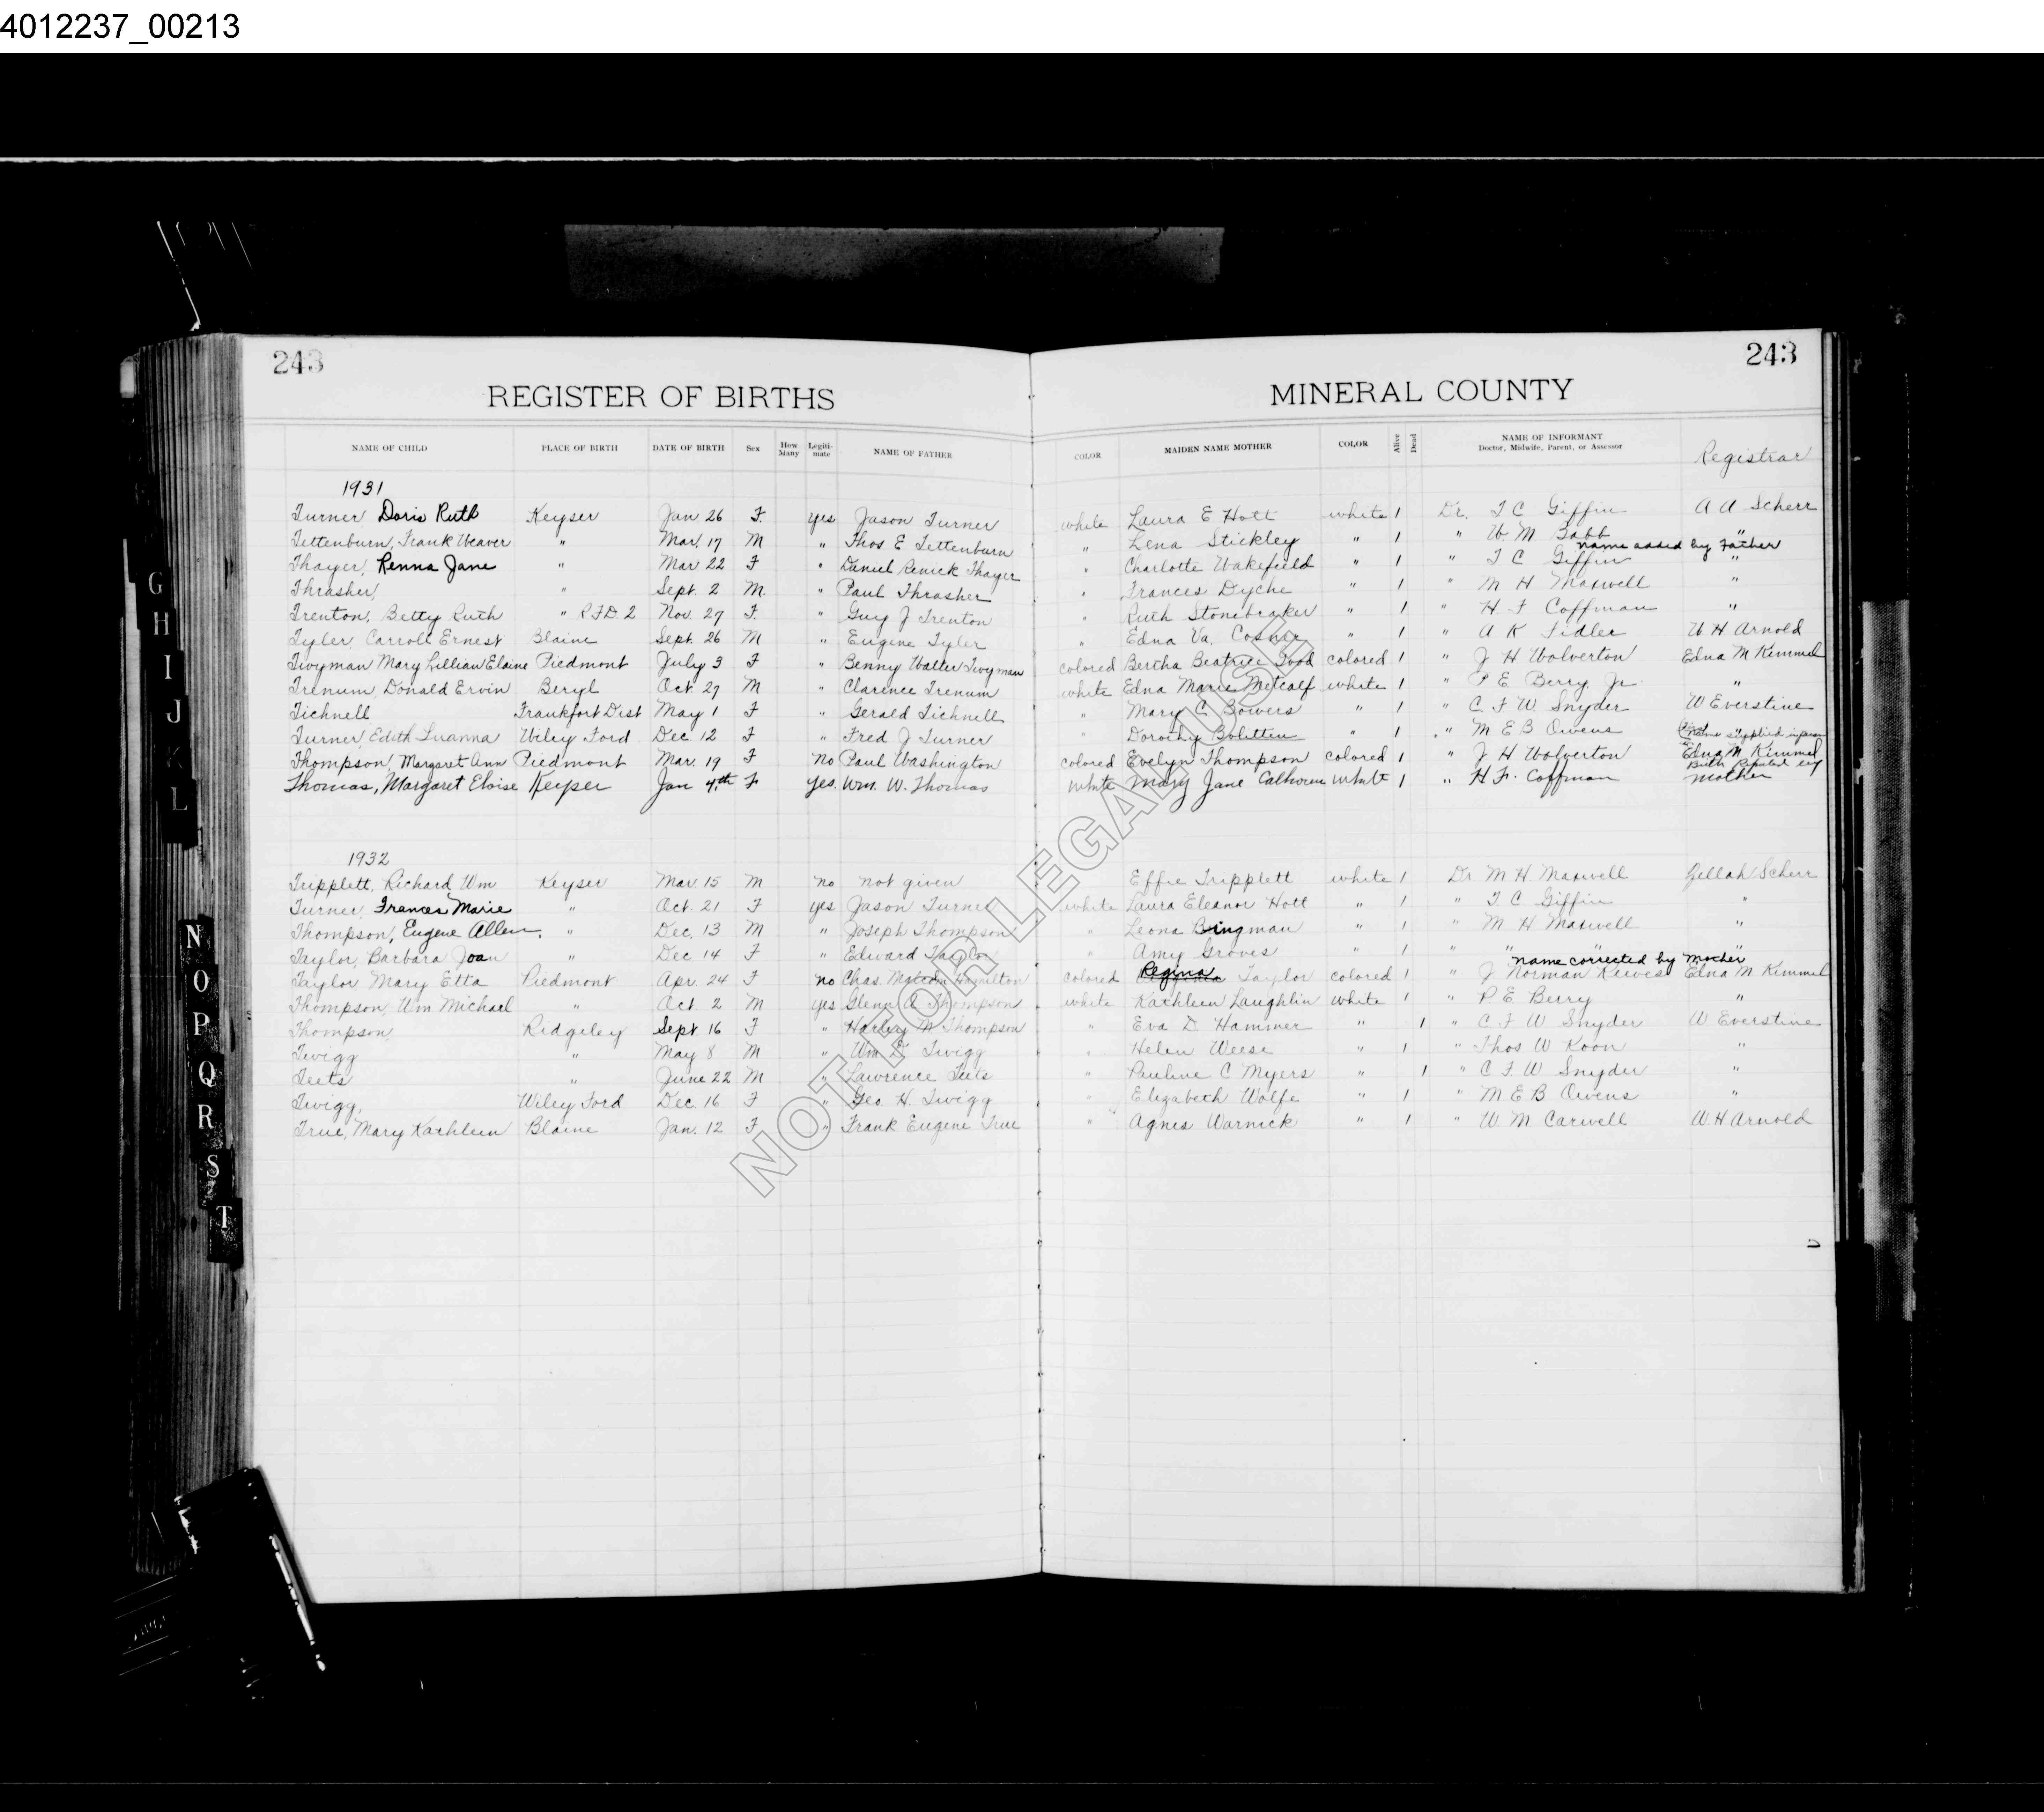 4012237_00213
243 243
REGISTER OF BIRTHS MINERAL COUNTY
NAME OF CHILD PLACE OF BIRTH DATE OF BIRTH Sex How Many Legiti-mate NAME OF FATHER COLOR MAIDEN NAME MOTHER COLOR Alive Dead NAME OF INFORMANT Doctor, Midwife, Parent, or Assessor Registrar
1931
Turner Doris Ruth Keyser Jan 26 F. yes Jason Turner white Laura E Hott white 1 Dr. T C Giffin A A Scherr
Tettenburn, Frank Weaver " Mar. 17 M " Thos E Tettenburn " Lena Stickley " 1 " W M Babb "
name added by Father
Thayer, Renna Jane " Mar 22 F " Daniel Renick Thayer " Charlotte Wakefield " 1 " T C Giffin "
Thrasher, " Sept. 2 M. " Paul Thrasher " Frances Dyche " 1 " M H Maxwell "
Trenton, Betty Ruth " R.F.D. 2 Nov. 27 F. " Guy J Trenton " Ruth Stonebraker " 1 " H F Coffman "
Tyler, Carroll Ernest Blaine Sept. 26 M " Eugene Tyler " Edna Va. Cosner " 1 " A K Fidler W H Arnold
Twyman Mary Lillian Elaine Piedmont July 3 F " Benny Walter Twyman colored Bertha Beatrice Good colored 1 " J H Wolverton Edna M Kimmel
Trenum, Donald Ervin Beryl Oct 27 M " Clarence Trenum white Edna Marie Metcalf white 1 " P E Berry Jr "
Tichnell Frankfort Dist May 1 F " Gerald Tichnell " Mary C Bowers " 1 " C F W Snyder W Everstine
Turner, Edith Luanna Wiley Ford Dec. 12 F " Fred J Turner " Dorothy " 1 " M E B Owens name supplied
Thompson, Margaret Ann Piedmont Mar. 19 F no Paul Washington colored Evelyn Thompson colored 1 " J H Wolverton Edna M Kimmel
Thomas, Margaret Eloise Keyser Jan 4th F yes. Wm. W. Thomas white Mary Jane Calhoun white 1 " H. F. Coffman Birth Reported by mother
1932
Tripplett, Richard Wm Keyser Mar. 15 M no not given Effie Tripplett white 1 Dr M H Maxwell Zellah Scherr
Turner, Frances Marie " Oct. 21 F yes Jason Turner white Laura Eleanor Hott " 1 " T C Giffin "
Thompson, Eugene Allen. " Dec. 13 M " Joseph Thompson " Leona Bingman " 1 " M H Maxwell "
Taylor, Barbara Joan " Dec 14 F " Edward Taylor " Amy Groves " 1 " " " "
name corrected by Mother
Taylor Mary Etta Piedmont Apr. 24 F no Chas. Hamilton colored Regina Taylor colored 1 " J Norman Reeves Edna M Kimmel
Thompson, Wm Michael " Oct 2 M yes Glenn A Thompson white Kathleen Laughlin white 1 " P E Berry "
Thompson, Ridgeley Sept 16 F " Harley M Thompson " Eva D Hammer " 1 " C F W Snyder W Everstine
Twigg " May 8 M " Wm D Twigg " Helen Weese " 1 " Thos W Koon "
Teets " June 22 M " Lawrence Teets " Pauline C Myers " 1 " C F W Snyder "
Twigg, Wiley Ford Dec. 16 F " Geo. H. Twigg " Elizabeth Wolfe " 1 " M E B Owens "
True, Mary Kathleen Blaine Jan. 12 F " Frank Eugene True " Agnes Warnick " 1 " W M Carwell W H Arnold
NOT FOR LEGAL USE
G
H
I
J
K
L
N
O
P
Q
R
S
T